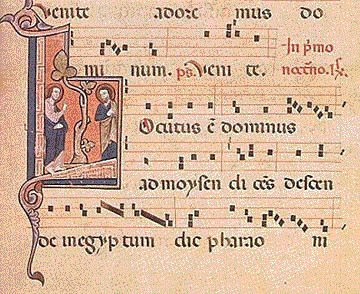 Venite adore mus do
mi num. ps. Veni te. In p̄mo
noct̄no. ℟.
Locutus ē dominus
ad moysen di cēs descen
de in egyptum dic pharao ni